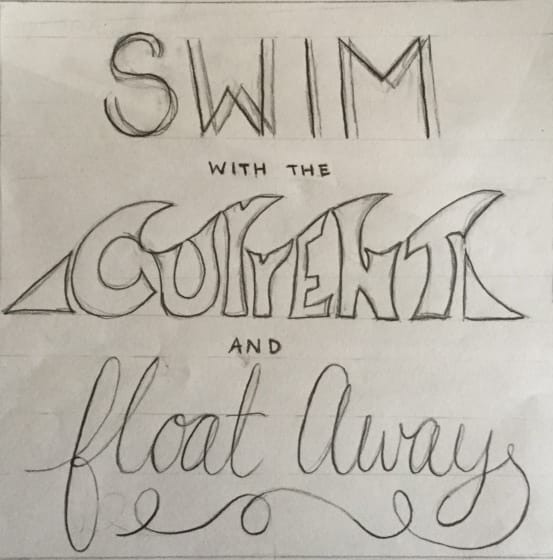 SWIM
WITH THE
CURRENT
AND
float Away